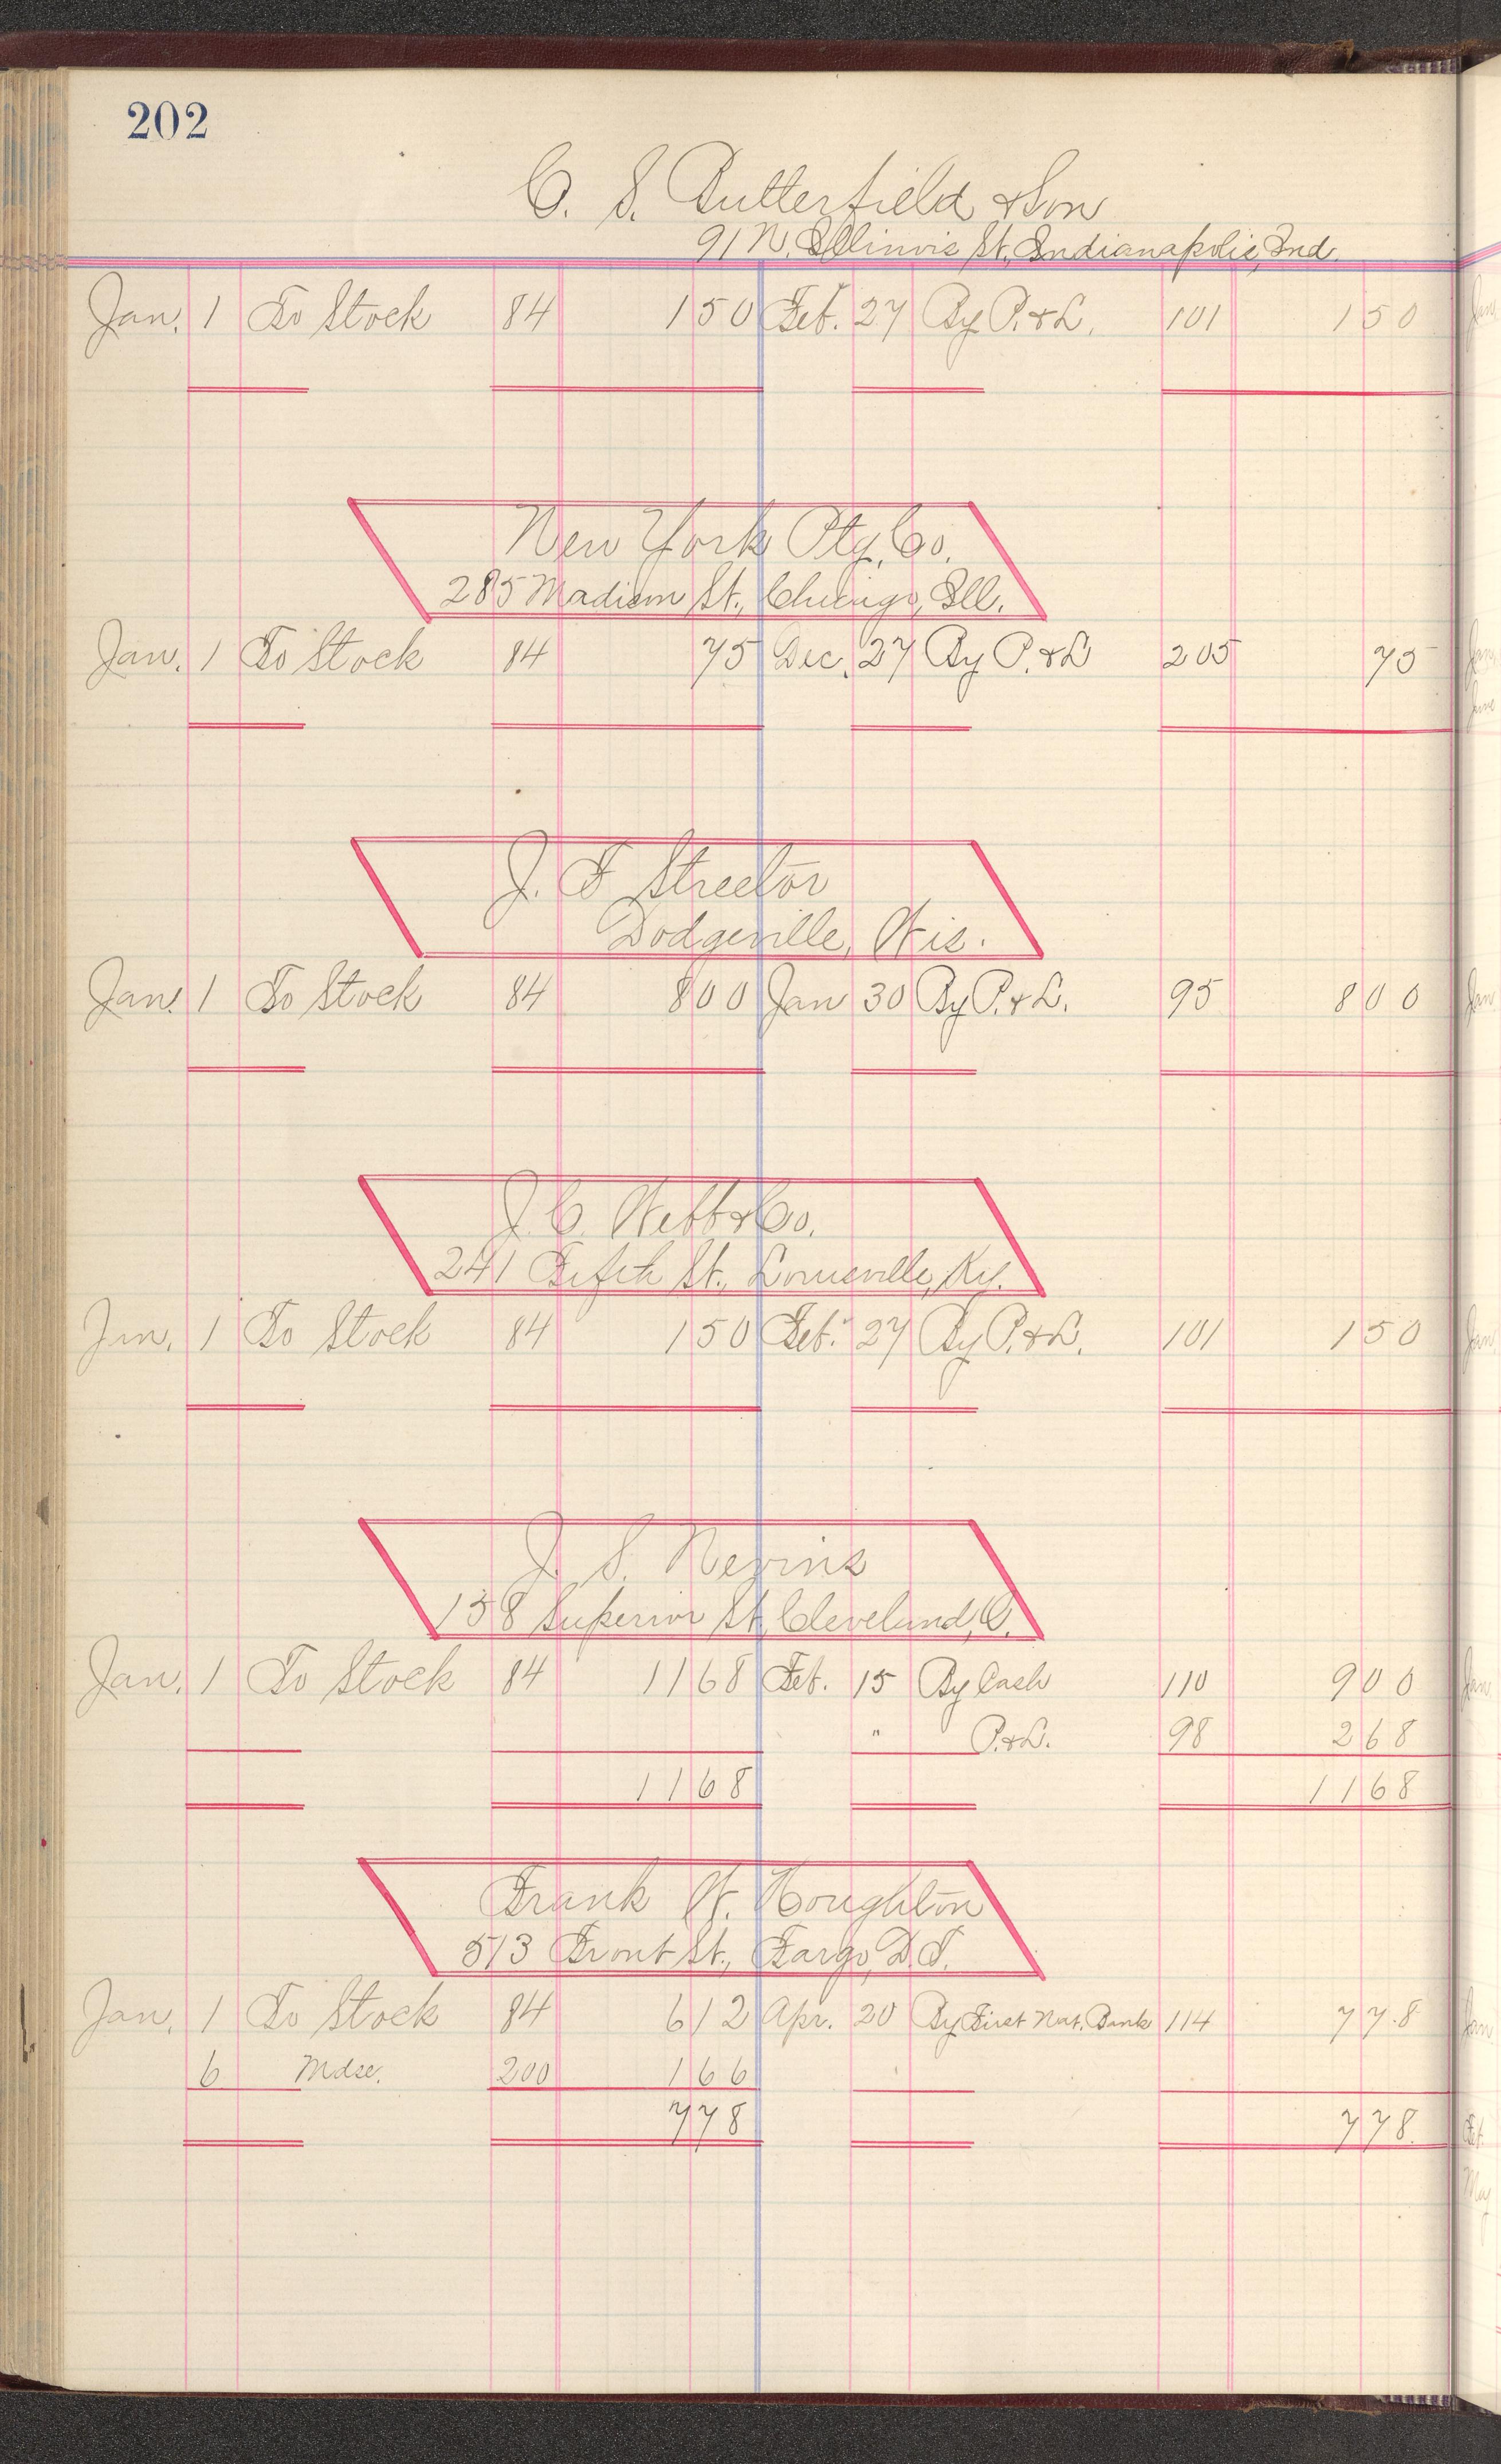 202
C. S. Butterfield & Son
91 N. Illinois St., Indianapolis, Ind.
Jan. 1 To Stock 84 150 Feb. 27 By P. & L. 101 150
New York Pty. Co.
285 Madison St., Chicago, Ill.
Jan. 1 To Stock 84 75 Dec. 27 By P. & L 205 75
J. F Streetor
Dodgeville, Wis.
Jan. 1 To Stock 84 800 Jan 30 By P. & L. 95 800
J. C. Webb & Co.
241 Fifth St., Louisville, Ky.
Jan. 1 To Stock 84 150 Feb. 27 By P. & L. 101 150
J. S. Nevins
138 Superior St., Cleveland, O.
Jan. 1 To Stock 84 1168 Feb. 15 By Cash 110 900
" P. & L. 98 268
1168 1168
Frank W. Houghton
513 Front St., Fargo, D.T.
Jan. 1 To Stock 84 612 Apr. 20 By First Nat. Bank 114 778
6 Mdse. 200 166
778 778